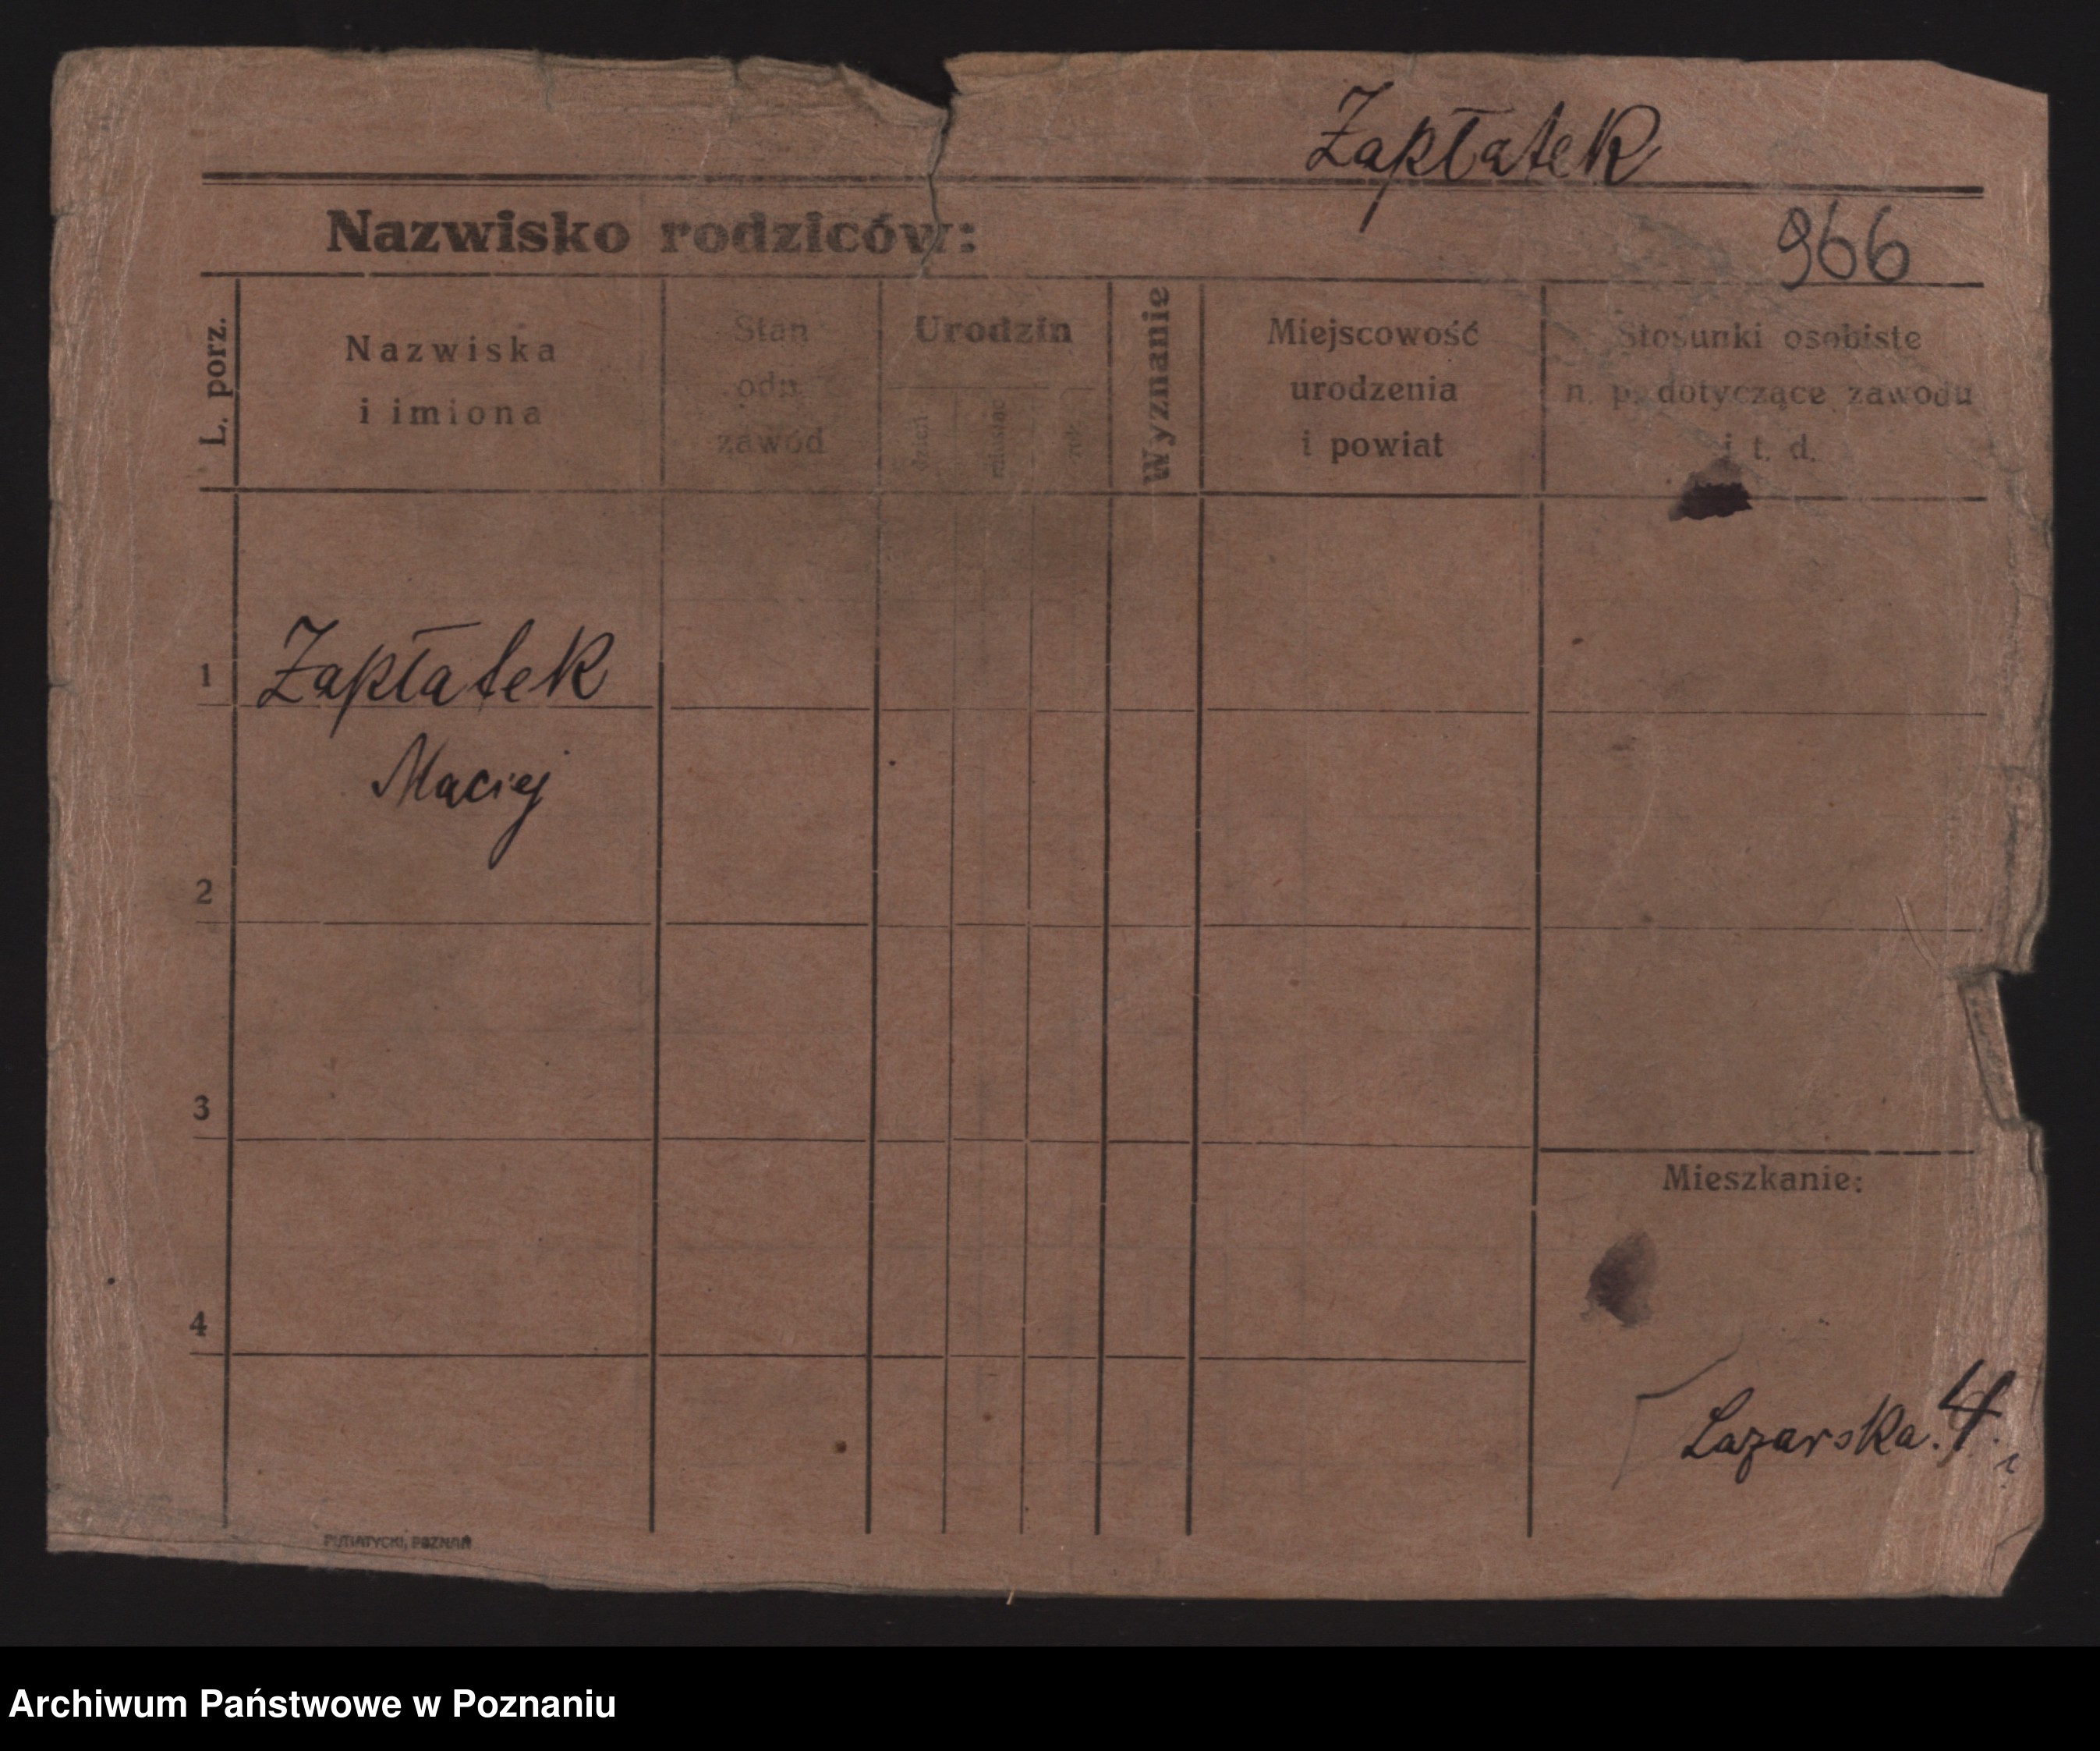 Zapłatek
Nazwisko rodziców:
966
L. porz.
Nazwiska
i imiona
Stan
odn.
zawód
Urodzin
dzień
miesiąc
rok
Wyznanie
Miejscowość
urodzenia
i powiat
Stosunki osobiste
n. p. dotyczące zawodu
i t. d.
1 Zapłatek
Maciej
2
3
Mieszkanie:
4
Lazarska. 4.
PUTIATYCKI, POZNAŃ
Archiwum Państwowe w Poznaniu